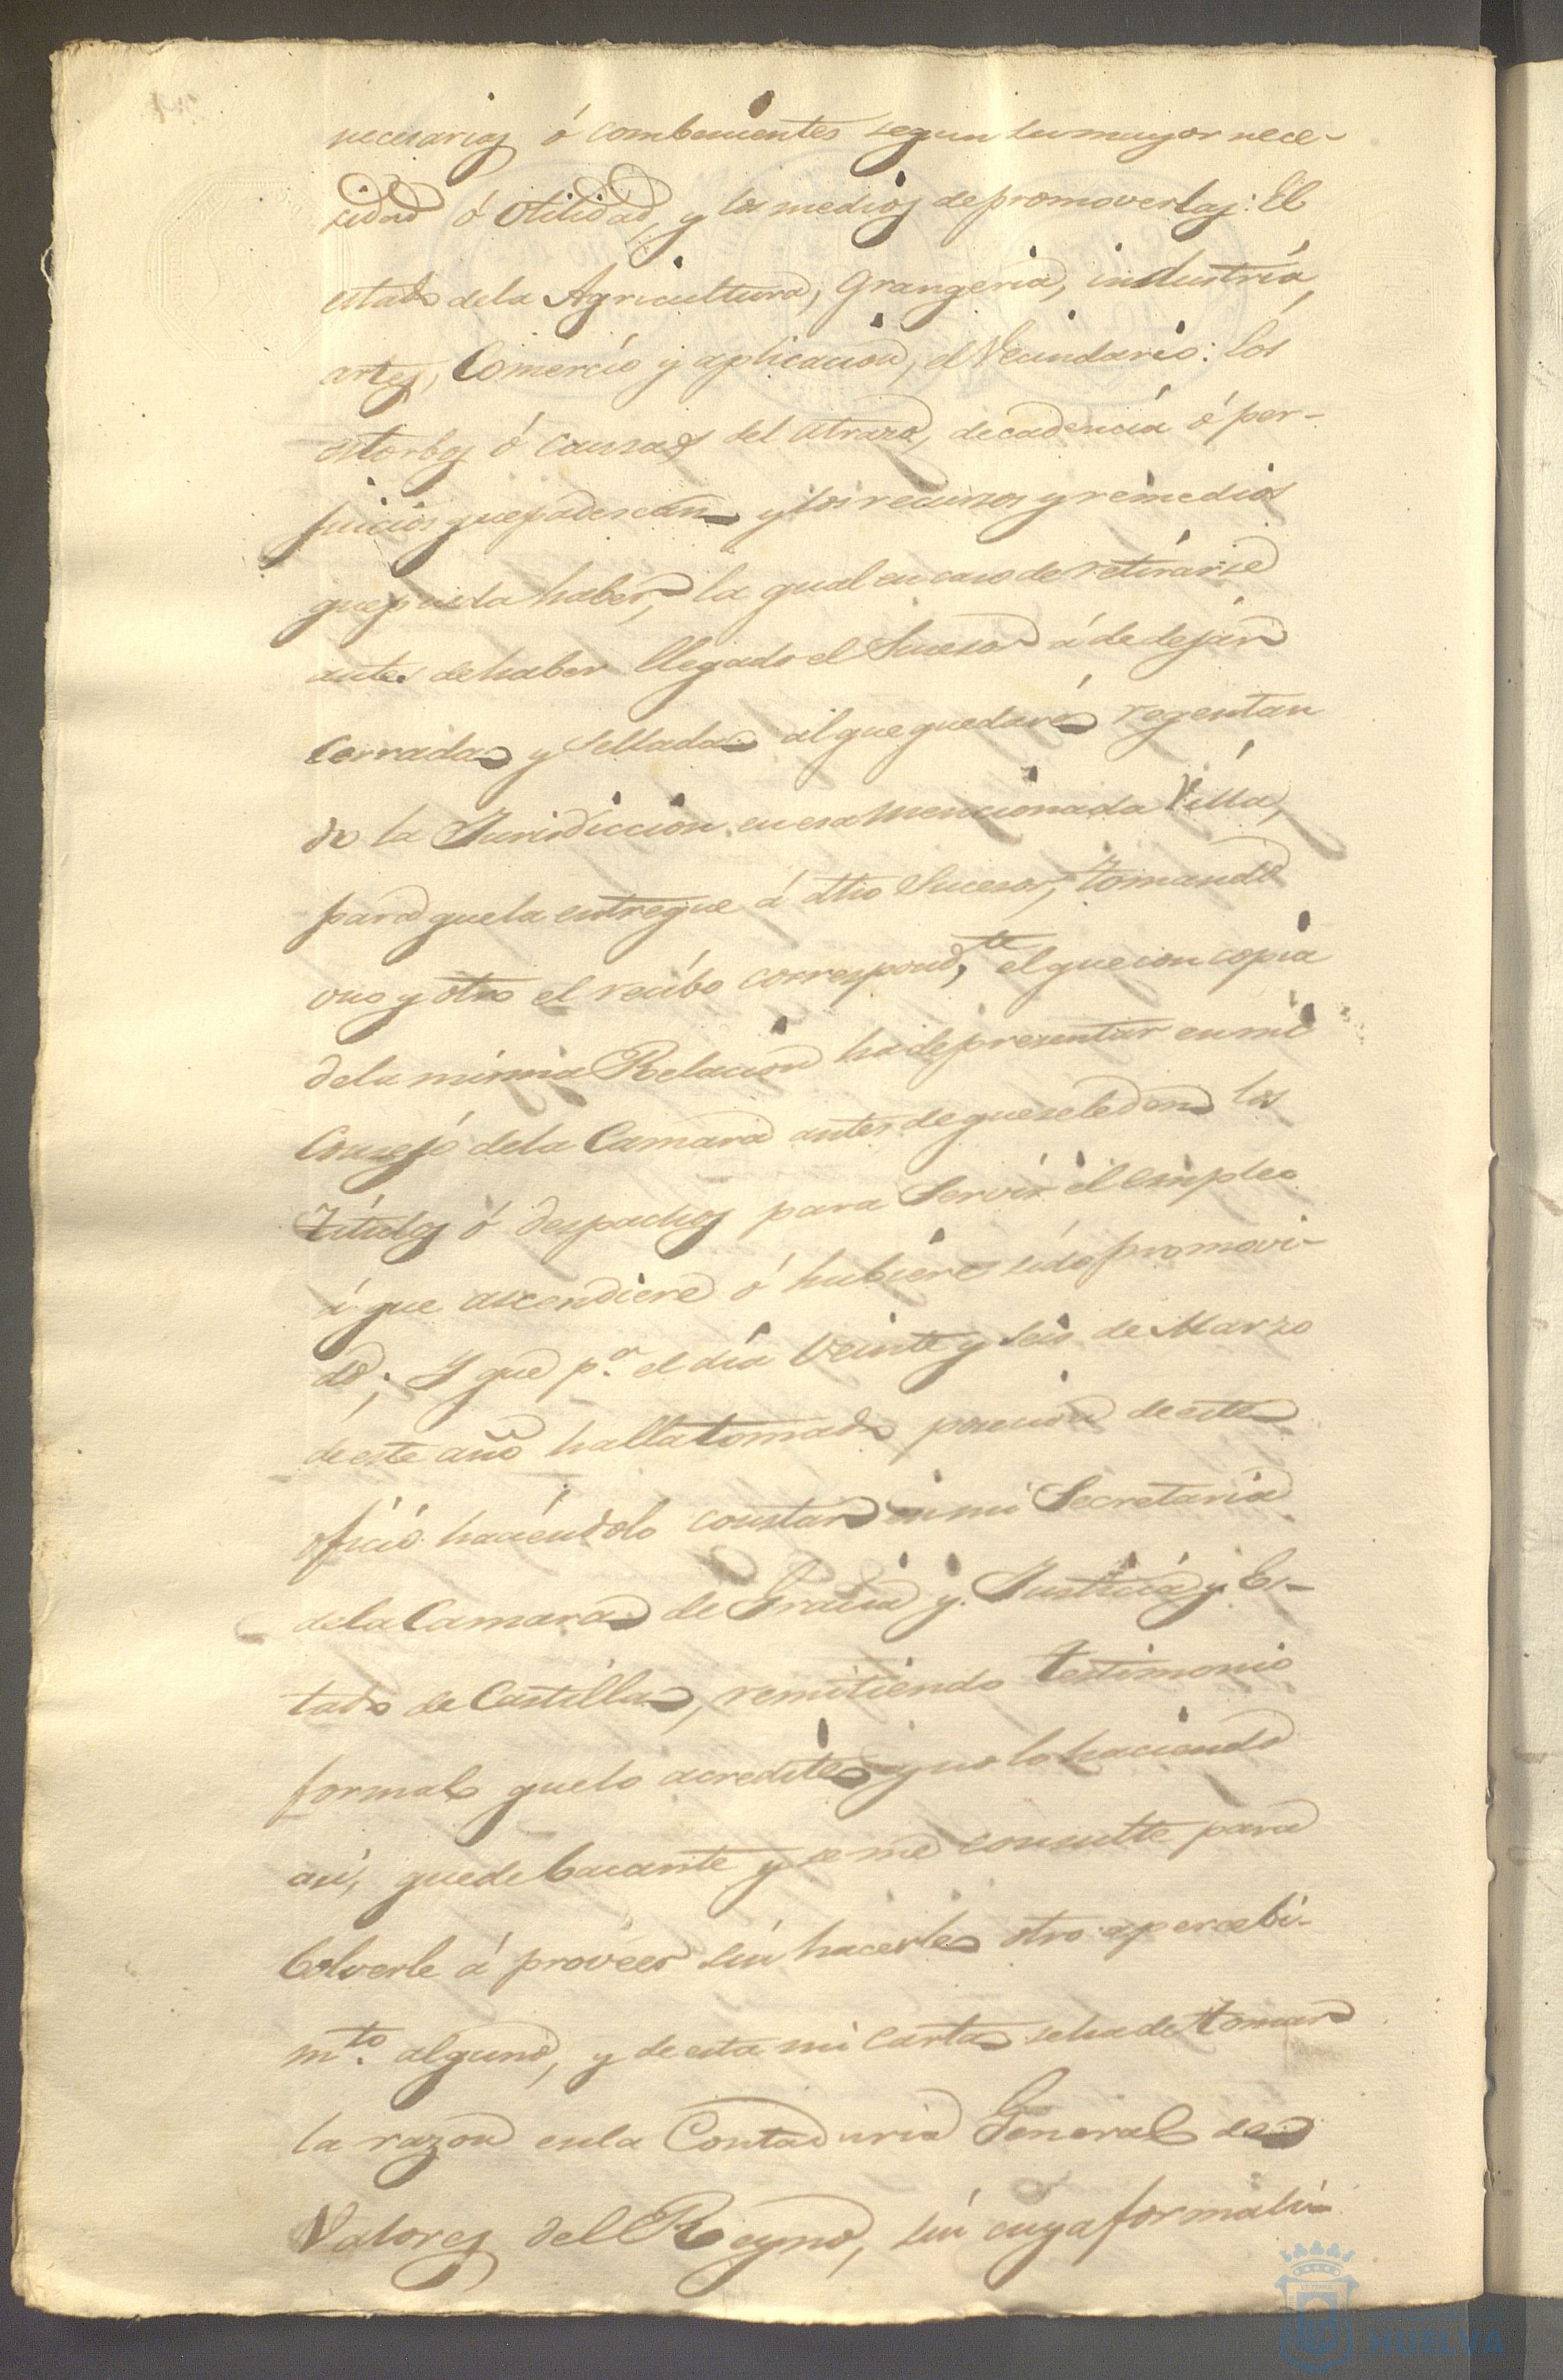 necesarios ó combenientes segun su mayor nece-
cidad ó Otilidad, y los medios de promoverlas: El
estado dela Agricultura, Grangeria, industria,
artes, Comercio y aplicacion, el Vecindario: los
estorbos ó causas del atrazo, decadencia ó per-
juicios que padescan y los recursos y remedios
que pueda haber, la qual en caso de retirarse
antes de haber llegado el Sucesor á de dejar
Cerrada y Sellada al que quedare regentan
do la Jurisdiccion en esa mencionada Villa,
para que la entregue á dho Sucesor, tomando
uno y otro el recibo correspond,te el que con copia
dela misma Relacion ha de presentar en mi
Consejo dela Camara antes de que se le den los
Títulos ó despachos para Servir el empleo
á que ascendiere ó hubiere sido promovi-
do; Y que p.a el dia Veinte y Seis de Marzo
de este año halla tomado posesion de este
oficio haciendolo constar en mi Secretaria
dela Camara de Gracia y Justicia y Es-
tado de Castilla, remitiendo testimonio
formal que lo acredite y no lo haciendo
asi, quede bacante y se me consulte para
bolverle á proveer sin hacerle otro apercebi-
mto. alguno, y de esta mi Carta se ha de tomar
la razon en la Contaduria General de
Valores del Reyno, sin cuya formali-
HUELVA